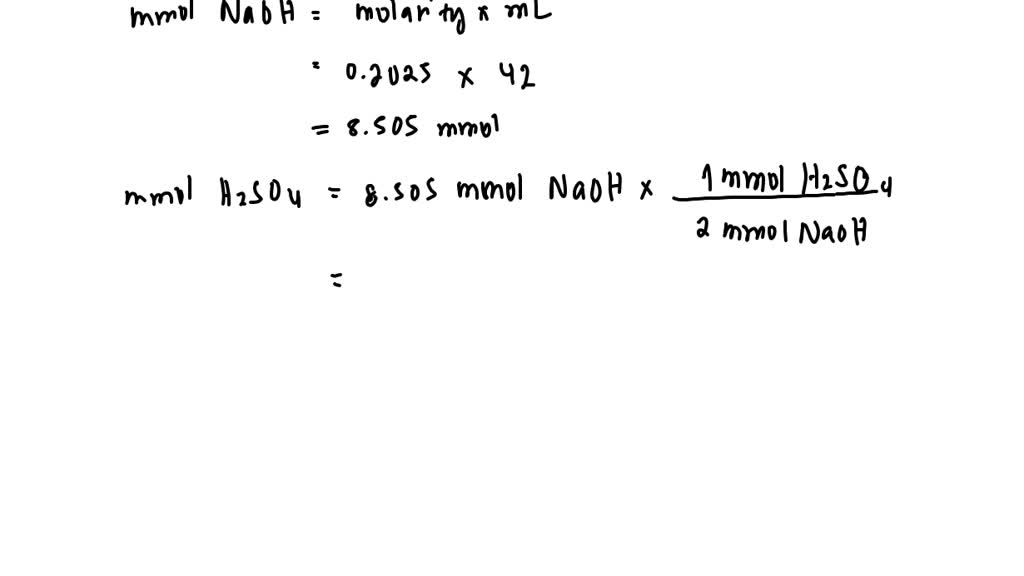 mmol NaOH = molarity x mL
= 0.2025 x 42
= 8.505 mmol
mmol H2SO4 = 8.505 mmol NaOH x 1 mmol H2SO4
2 mmol NaOH
=